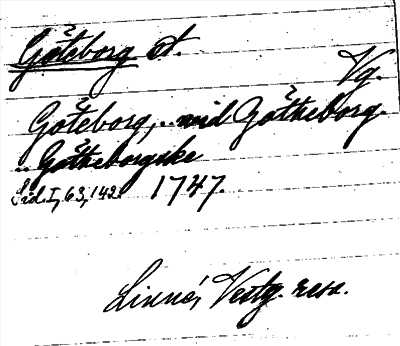 Göteborg st.
Vg.
Göteborg, .. wid Götheborg.
.. Götheborgske
Sid. I, 63, 142. 1747.
Linné, Vestg. resa.